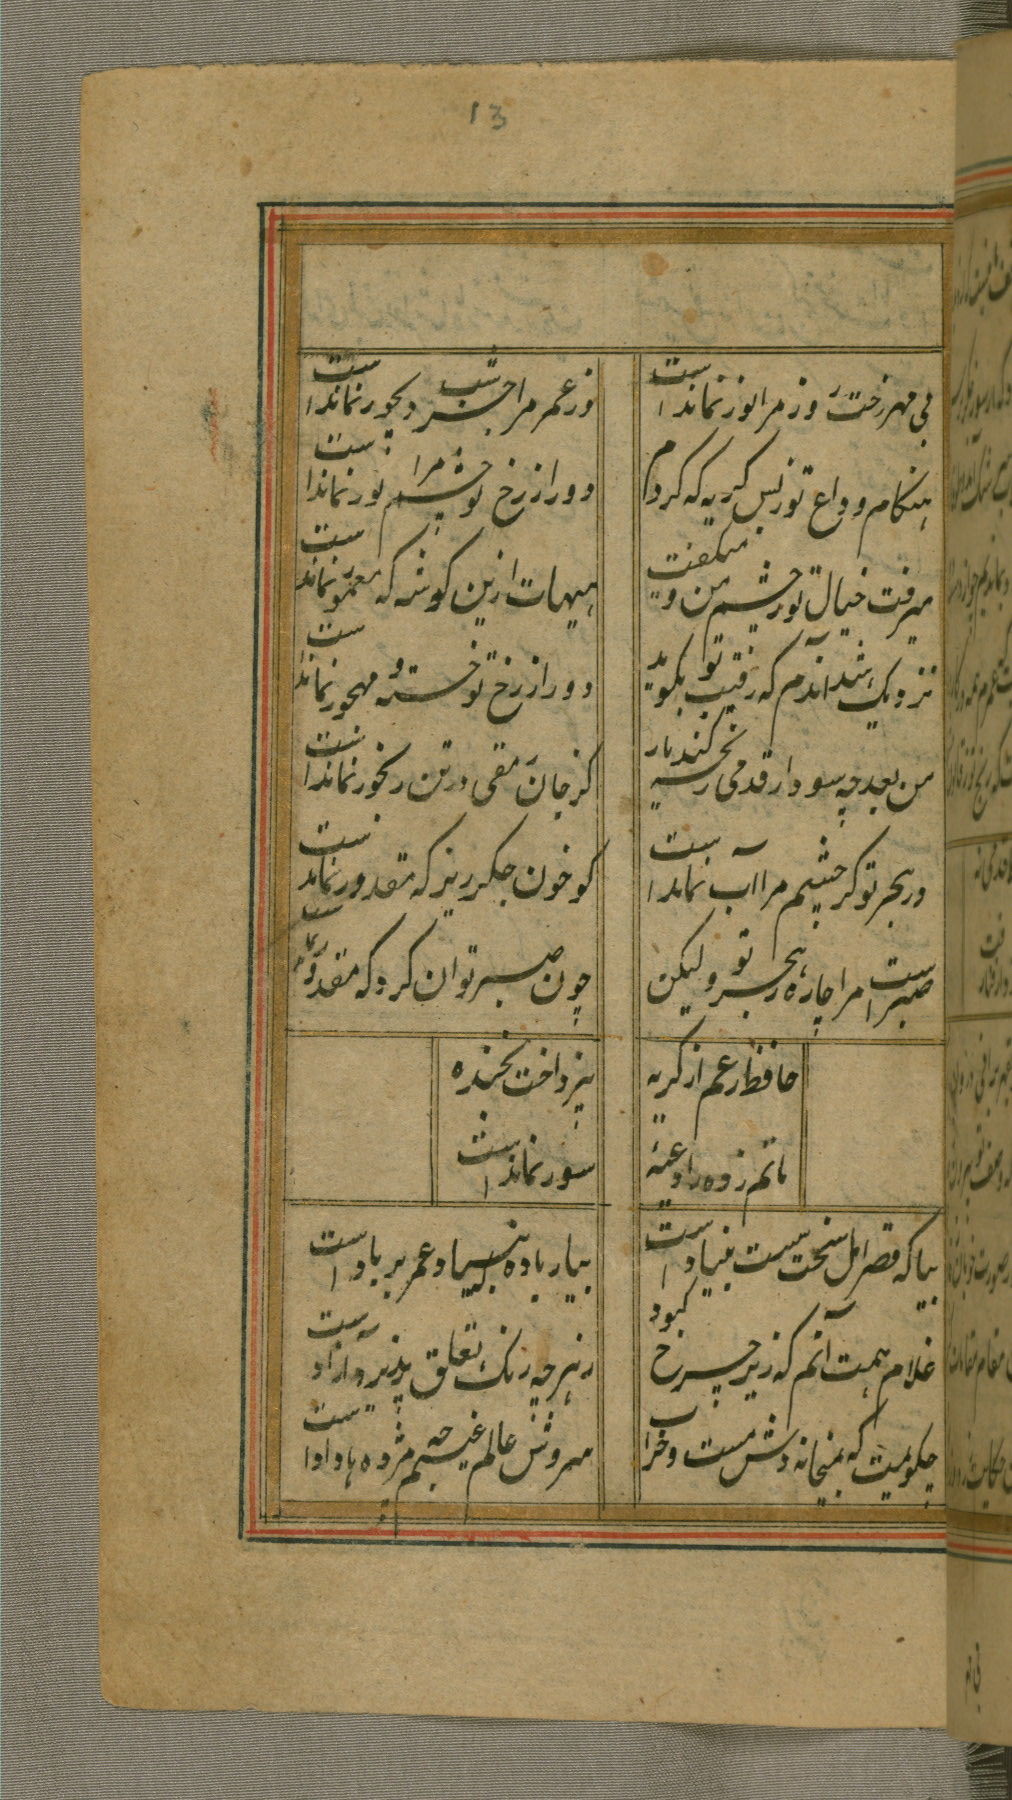 13
بی مهر رخت روز مرا نور نماندست
وز عمر مرا جز شب دیجور نماندست
هنگام وداع تو ز بس گریه که کردم
دور از رخ تو چشم مرا نور نماندست
میرفت خیال تو ز چشم من و میگفت
هیهات ازین گوشه که معمور نماندست
نزدیک شد آندم که رقیب تو بگوید
دور از رخ تو خسته و مهجور نماندست
من بعد چه سود ار قدمی رنجه کند یار
کز جان رمقی در تن رنجور نماندست
در هجر تو گر چشم مرا آب نماندست
گو خون جگر ریز که مقدور نماندست
صبر است مرا چاره ز هجر تو ولیکن
چون صبر توان کرد که مقدور نماندست
حافظ ز غم از گریه
نپرداخت بخنده
ماتم زده را داعیه
سور نماندست
بیا که قصر امل سخت سست بنیادست
بیار باده که بنیاد عمر بر بادست
غلام همت آنم که زیر چرخ کبود
ز هر چه رنگ تعلق پذیرد آزادست
چگویمت که بمیخانه دوش مست و خراب
سروش عالم غیبم چه مژده ها دادست